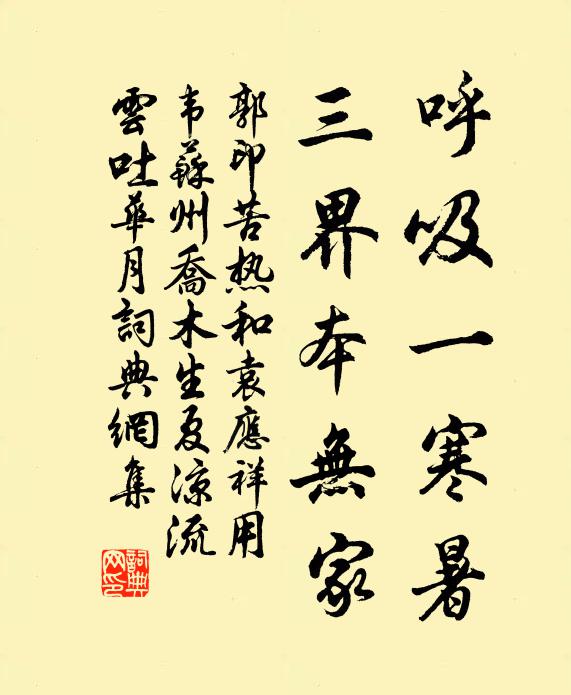 呼吸一寒暑
三界本無家
郭印苦热和袁應祥用
韦蘇州喬木生夏凉流
雲吐華月詞典網集
詞典網印